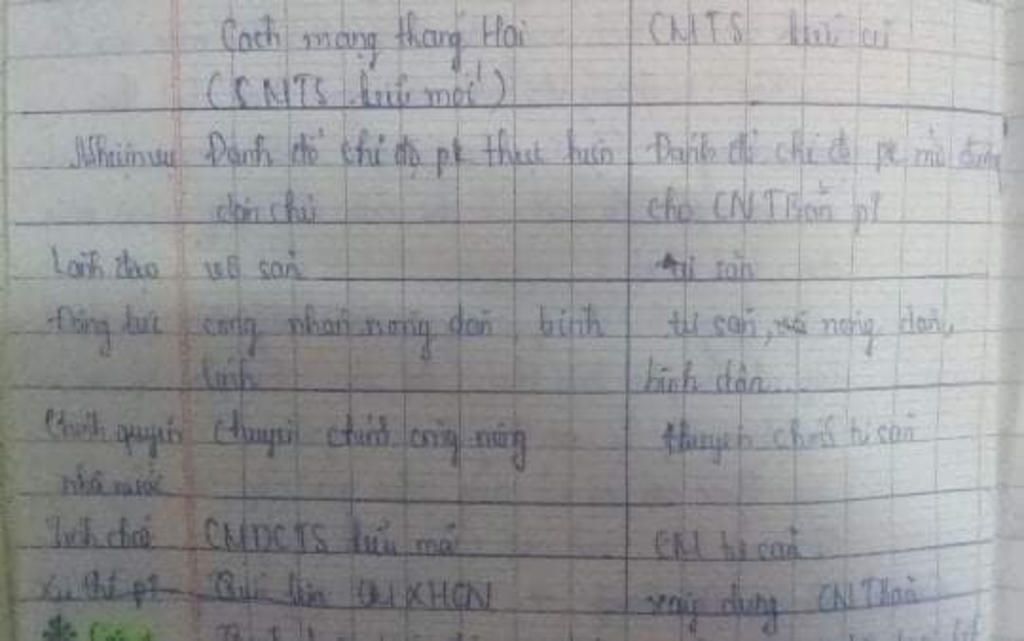 Cách mạng tháng Hai CMTS kiểu cũ
(CMTS kiểu mới)
Nhiệm vụ Đánh đổ chế độ pk thực hiện Đánh đổ chế độ pk mở đường
dân chủ cho CNTBản pt
Lãnh đạo vô sản tư sản
Động lực công nhân nông dân binh tư sản, nông dân,
lính bình dân...
Chính quyền chuyên chính công nông chuyên chính tư sản
nhà nước
Tính chất CMDCTS kiểu mới CM tư sản
Xu thế pt lên CMXHCN xây dựng CNTBản